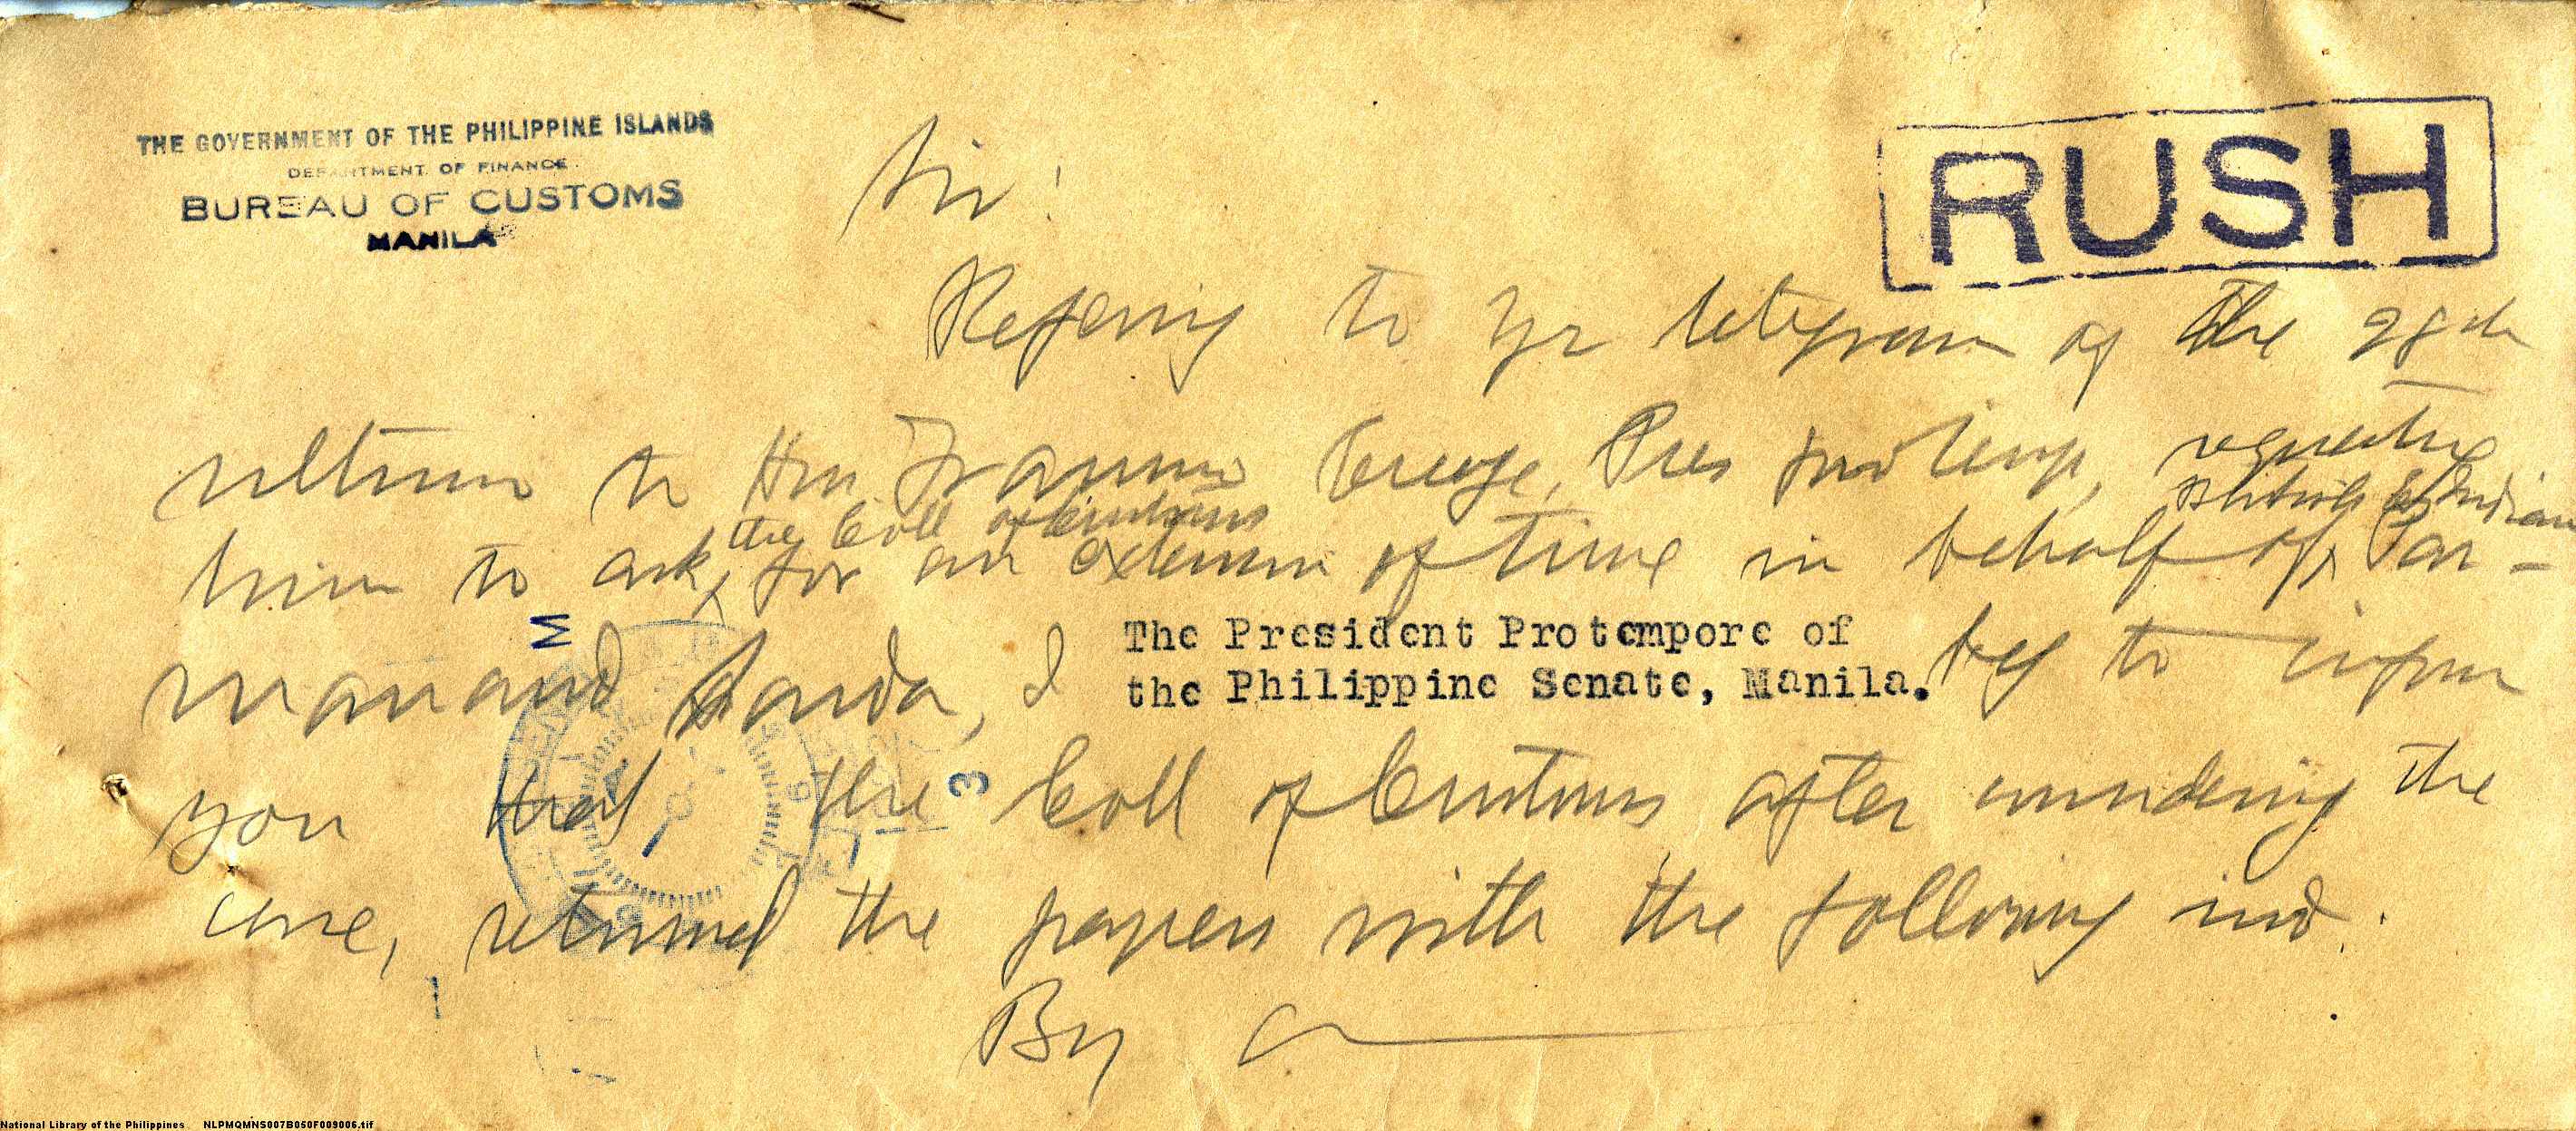 THE GOVERNMENT OF THE PHILIPPINE ISLANDS
DEPARTMENT OF FINANCE
BUREAU OF CUSTOMS
MANILA
RUSH
Sir:
Refering to yr telegram of the 28th
ultimo to Hon. Francisco Pres protemp, requesting
him to ask the Coll of Customs for an extension of time in behalf of Par-
manand Chanda, I beg to inform
The President Protempore of
the Philippine Senate, Manila.
you that the Coll of Customs after considering the
case, returned the papers with the following ind.
By
National Library of the Philippines NLPMQMNS007B050F009006.tif